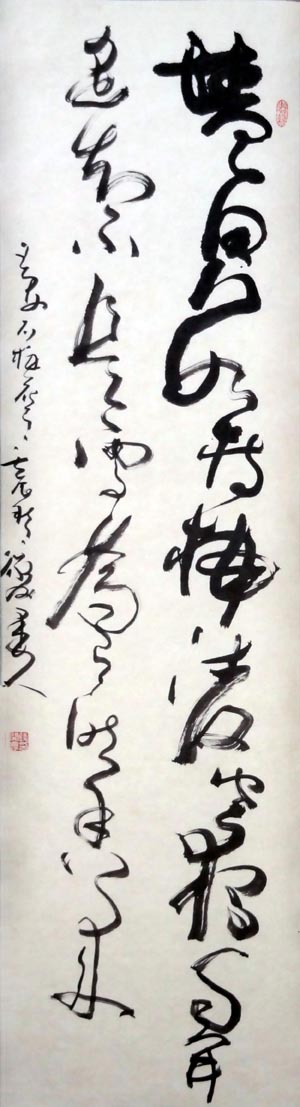 墻角數枝梅凌寒獨自開
遙知不是雪為有暗香來
王安石梅花